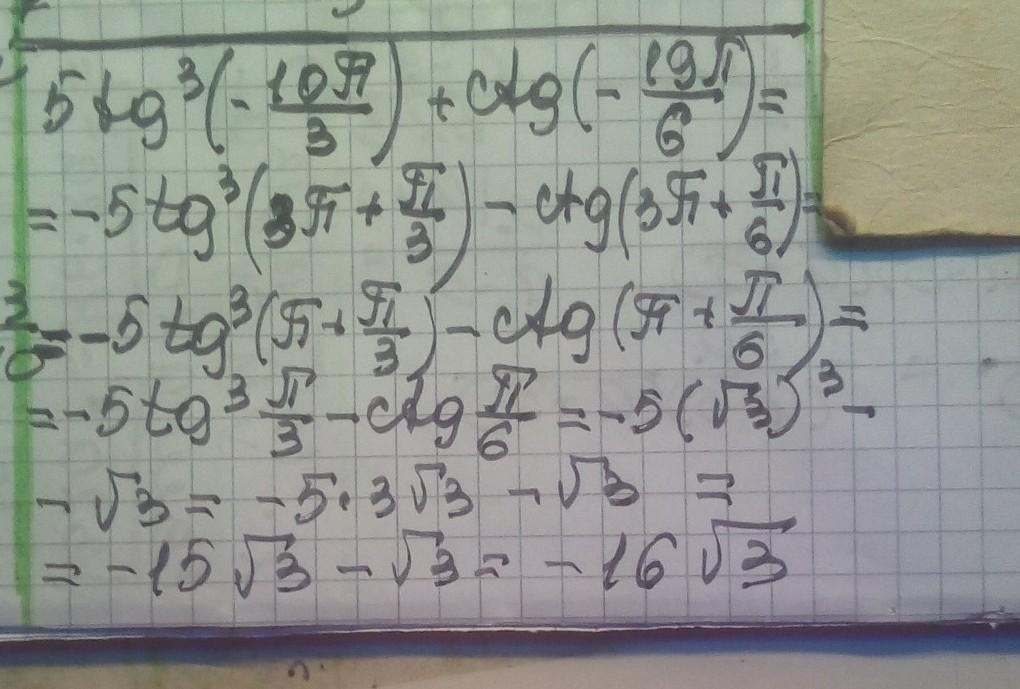 5 tg³(-10π/3) + ctg(-19π/6) =
= -5 tg³(3π + π/3) - ctg(3π + π/6) =
= -5 tg³(π + π/3) - ctg(π + π/6) =
= -5 tg³ π/3 - ctg π/6 = -5(√3)³ -
- √3 = -5·3√3 - √3 =
= -15√3 - √3 = -16√3